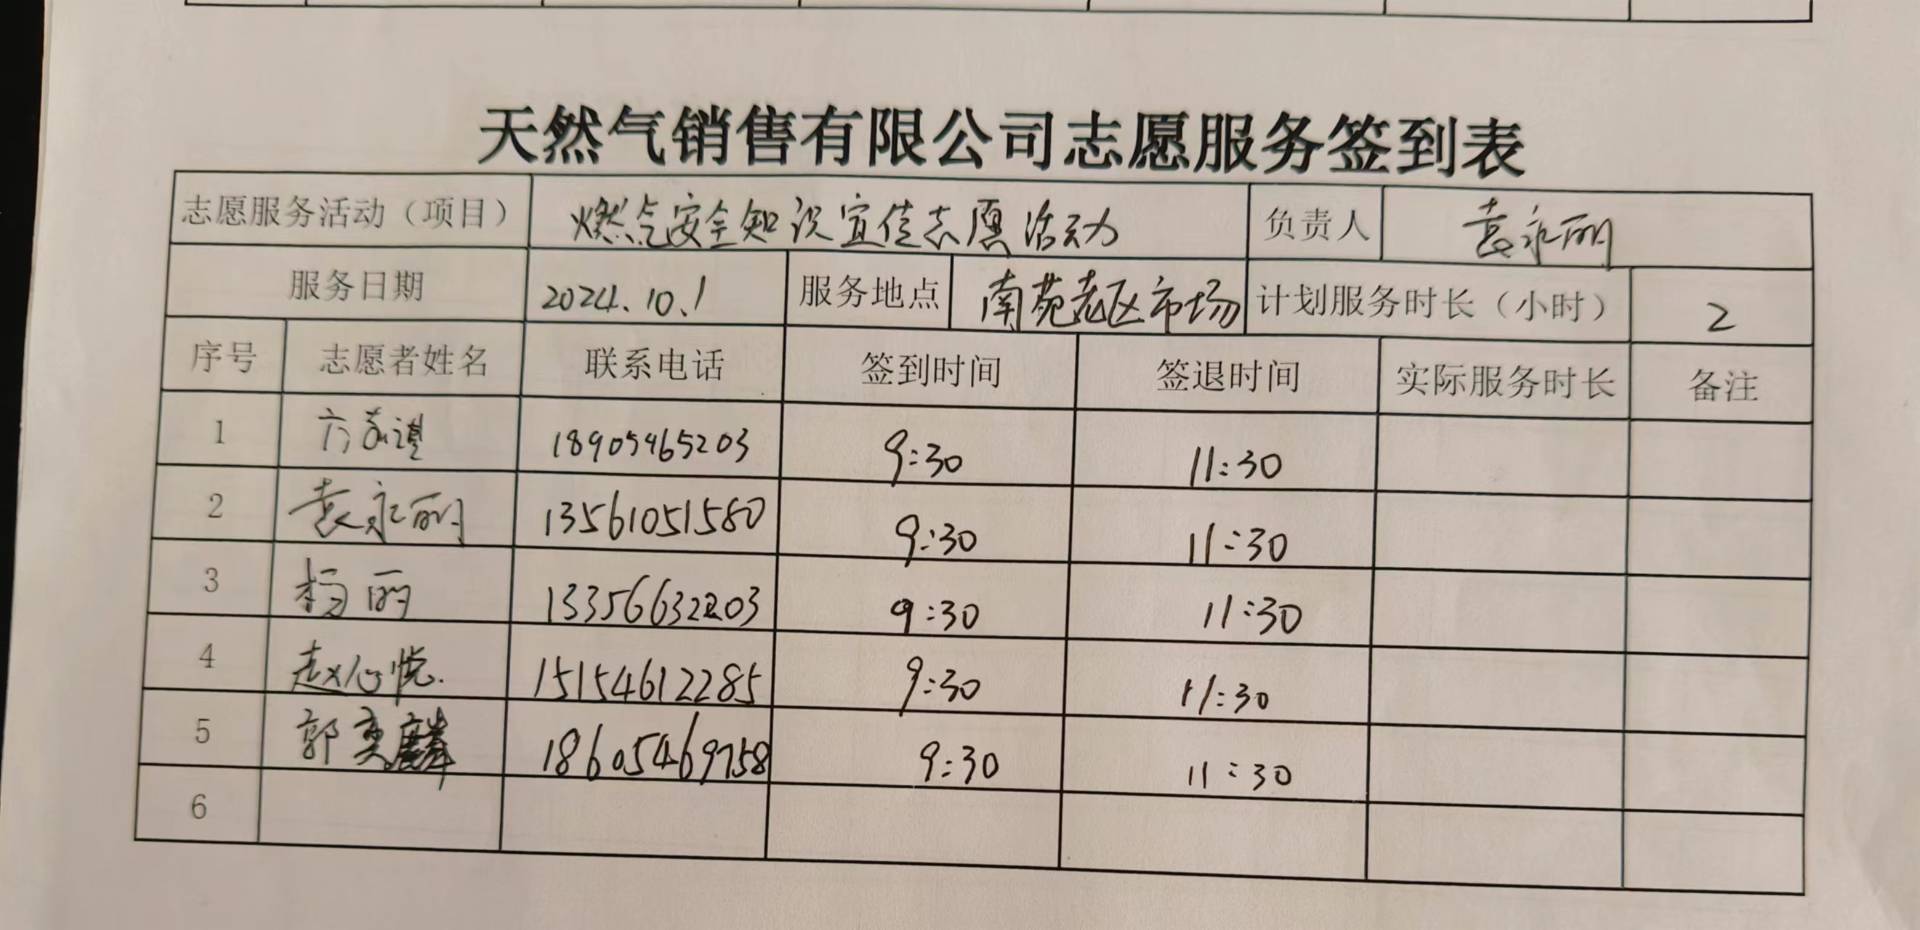 天然气销售有限公司志愿服务签到表
志愿服务活动（项目） 燃气安全知识宣传志愿活动 负责人 袁永丽
服务日期 2024.10.1 服务地点 南苑老区市场 计划服务时长（小时） 2
序号 志愿者姓名 联系电话 签到时间 签退时间 实际服务时长 备注
1 18905465203 9:30 11:30
2 袁永丽 13561051580 9:30 11:30
3 杨丽 13356632203 9:30 11:30
4 赵心悦 15154612285 9:30 11:30
5 郭奕麟 18605469758 9:30 11:30
6